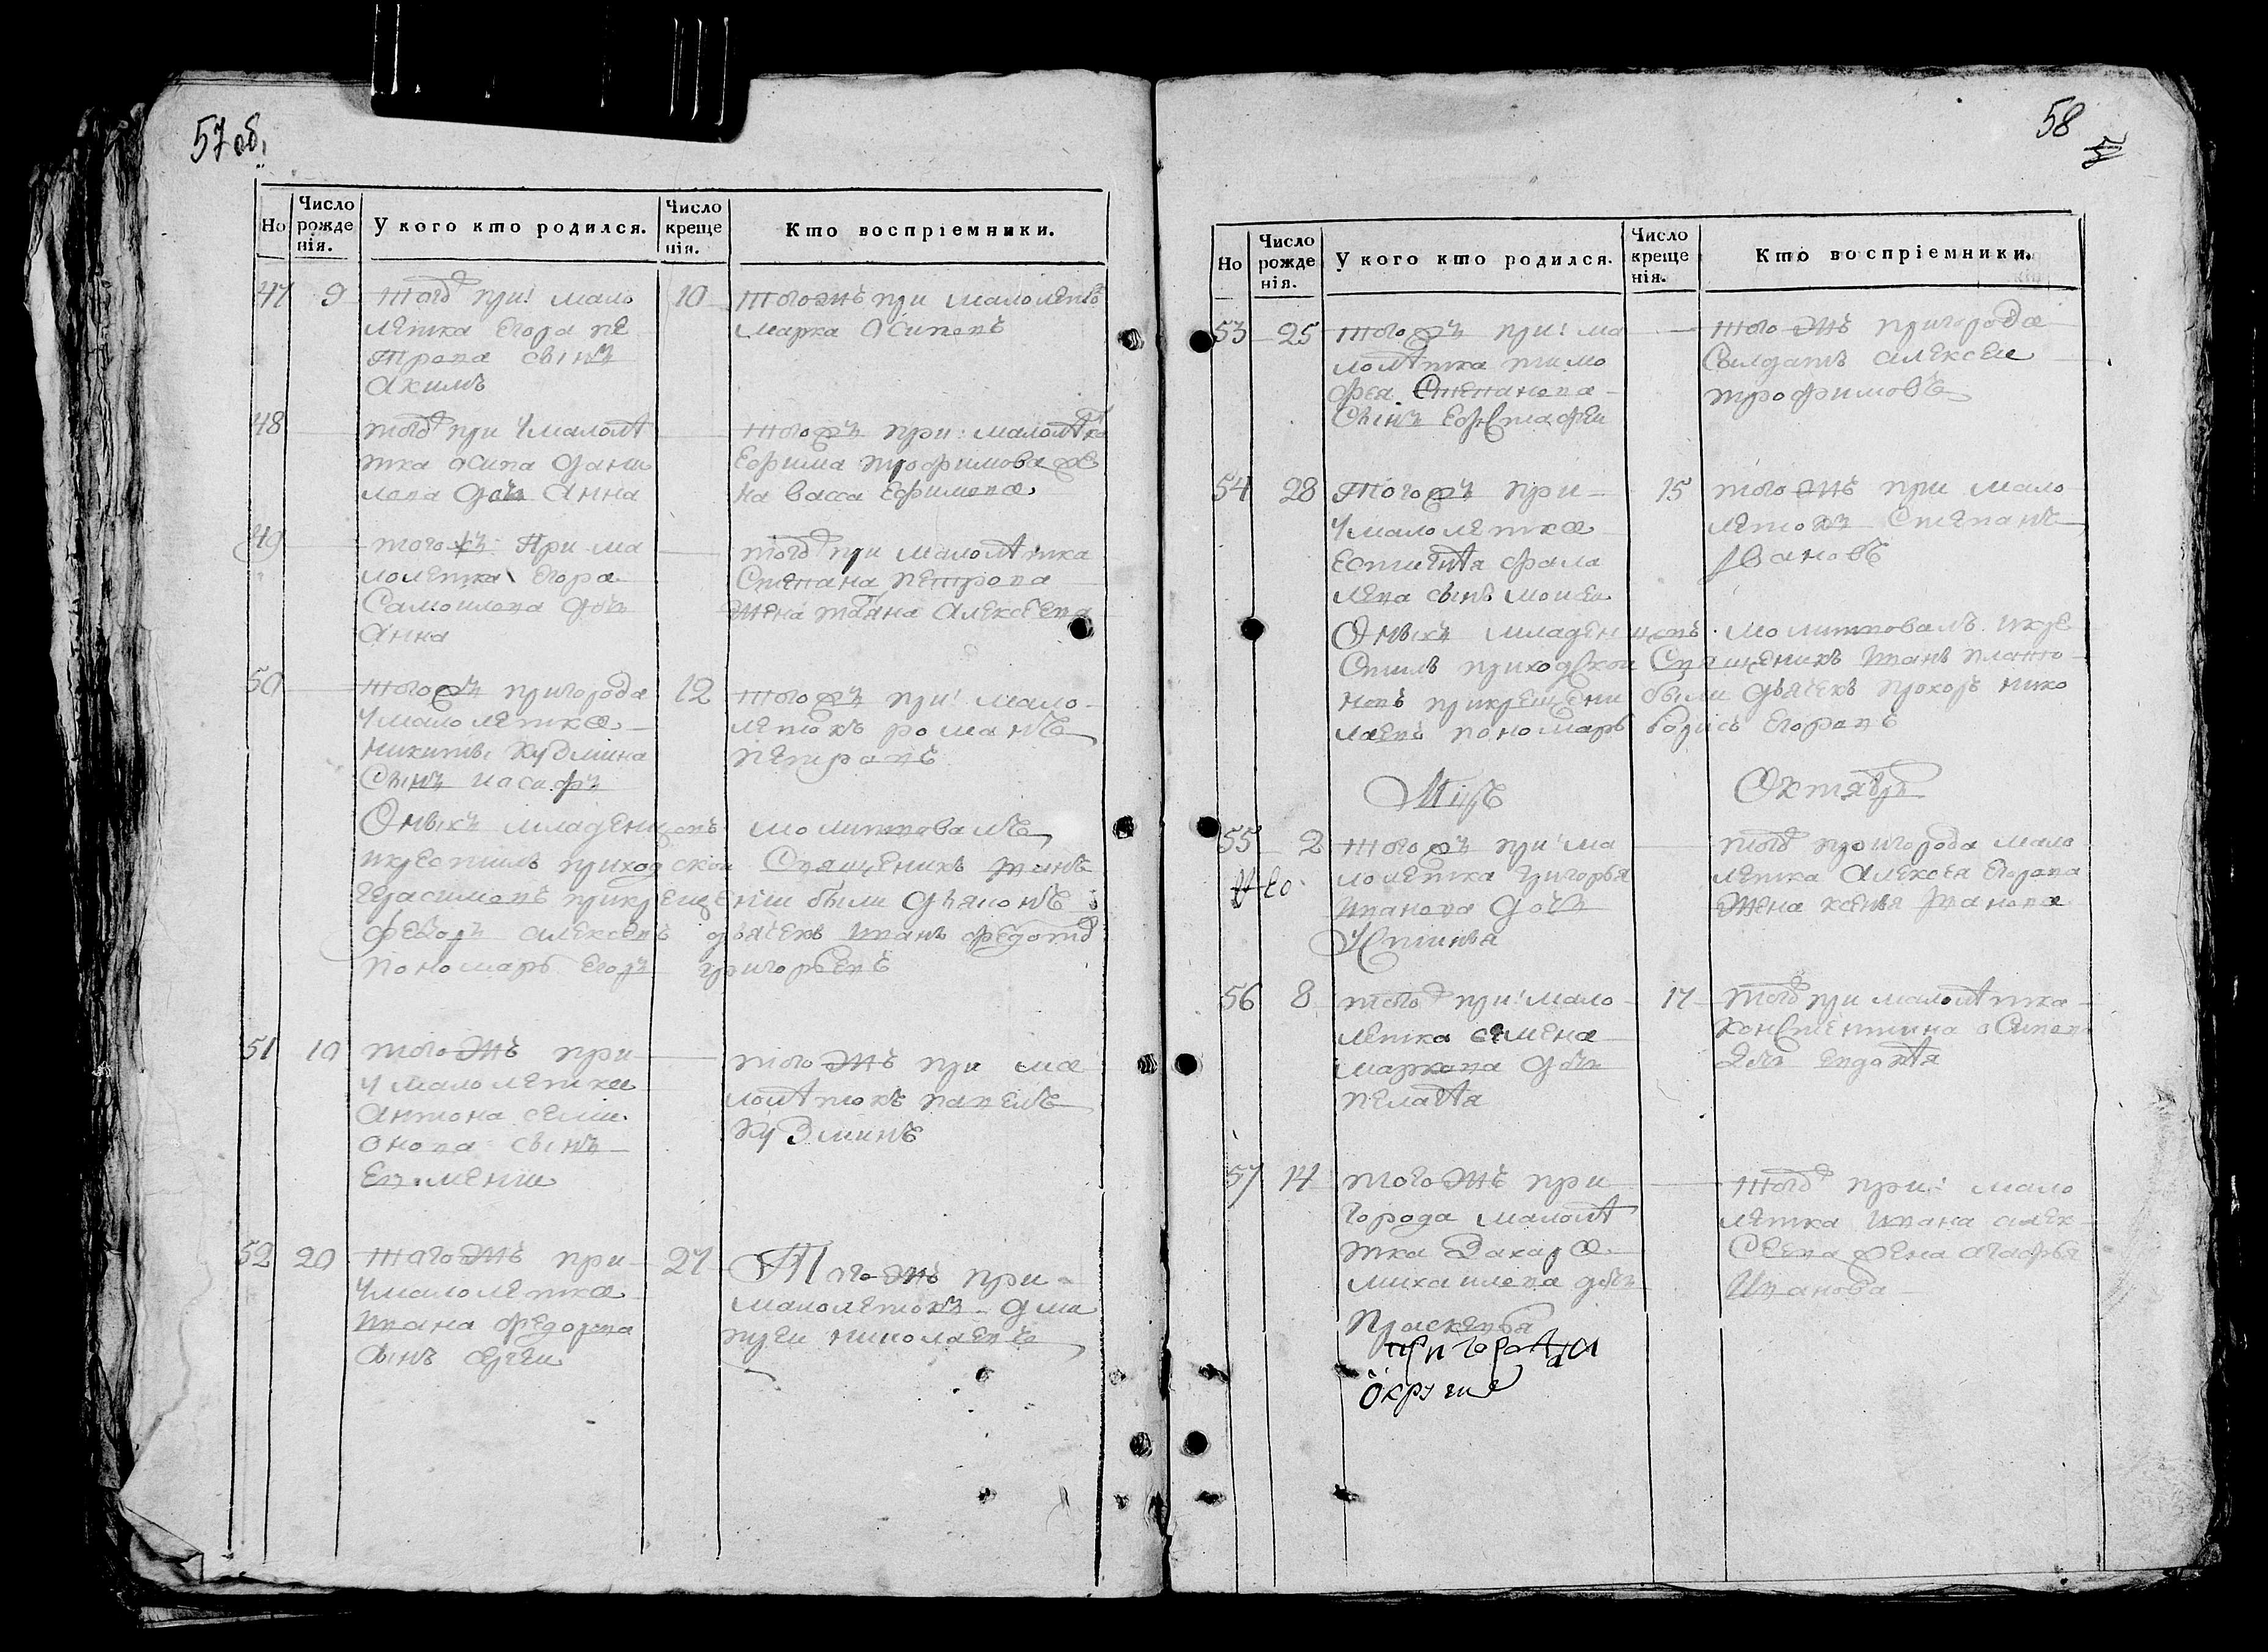 57 об.
Но
Число рожденія.
У кого кто родился.
Число крещенія.
Кто воспріемники.
47 9 того при: мало
лѣтка Егора пе
трова сынъ
Акимъ
10 того жъ при малолѣтокъ
марка Осиповъ
48 того при у малолѣ
тка осипа дани
лова дочь Анна
того жъ при: малолѣтка
Ефима трофимова же
на васса Ефимова
49 того жъ при ма
лолетка Егора
Самоилова дочь
Анна
того при малолѣтка
Степана петрова
жена татьяна Алексѣева
50 того жъ пригорода
у малолетка
никиты кудмина
сынъ иасафъ
12 того жъ при: мало
летокъ романъ
петровъ
Оныхъ младенцовъ молитвовалъ
и крестилъ приходской Священикъ Иванъ
Герасимовъ при крещении были дьяконъ
федоръ алексеевъ дьячекъ Иванъ федотовъ
пономарь Егоръ григорьевъ
51 10 того жъ при
у малолетка
антона семи
онова сынъ
того жъ при ма
лолѣтокъ павелъ
кудминъ
52 20 того жъ при
у малолетка
Ивана федорова
сынъ сергеи
27 Того жъ при
малолетокъ дми
трeи николаевъ
58
Но
Число рожденія.
У кого кто родился.
Число крещенія.
Кто воспріемники.
53 25 того жъ при: ма
лолѣтка тимо
фea Степанова
Сынъ Ефстафеи
того жъ пригорода
Солдатъ алексеи
трофимовъ
54 28 того жъ при
у малолетка
фрола
лева сынъ моисеи
15 того жъ при мало
летокъ Степанъ
Ивановъ
Оныхъ младенцовъ молитвовалъ и кре
стилъ приходской Священикъ Иванъ плато
новъ при крещени были дьячекъ прохоръ нико
лаевъ пономарь борисъ Егоровъ
Мцъ Октябрь
55 2 того жъ при: ма
лолетка григорья
Иванова дочь
Устинья
того пригорода мало
летка Алексея Егорова
жена ксенья Иванова
56 8 того при: мало
летка семена
маркова дочь
пелагѣя
17 того при малолѣтка
констентина осипова
дочь евдокѣя
57 14 того жъ при
города малолѣ
тка Захара
михаилова дочь
Праскевья
того при: мало
летка Ивана алек
сеева жена агафья
Иванова